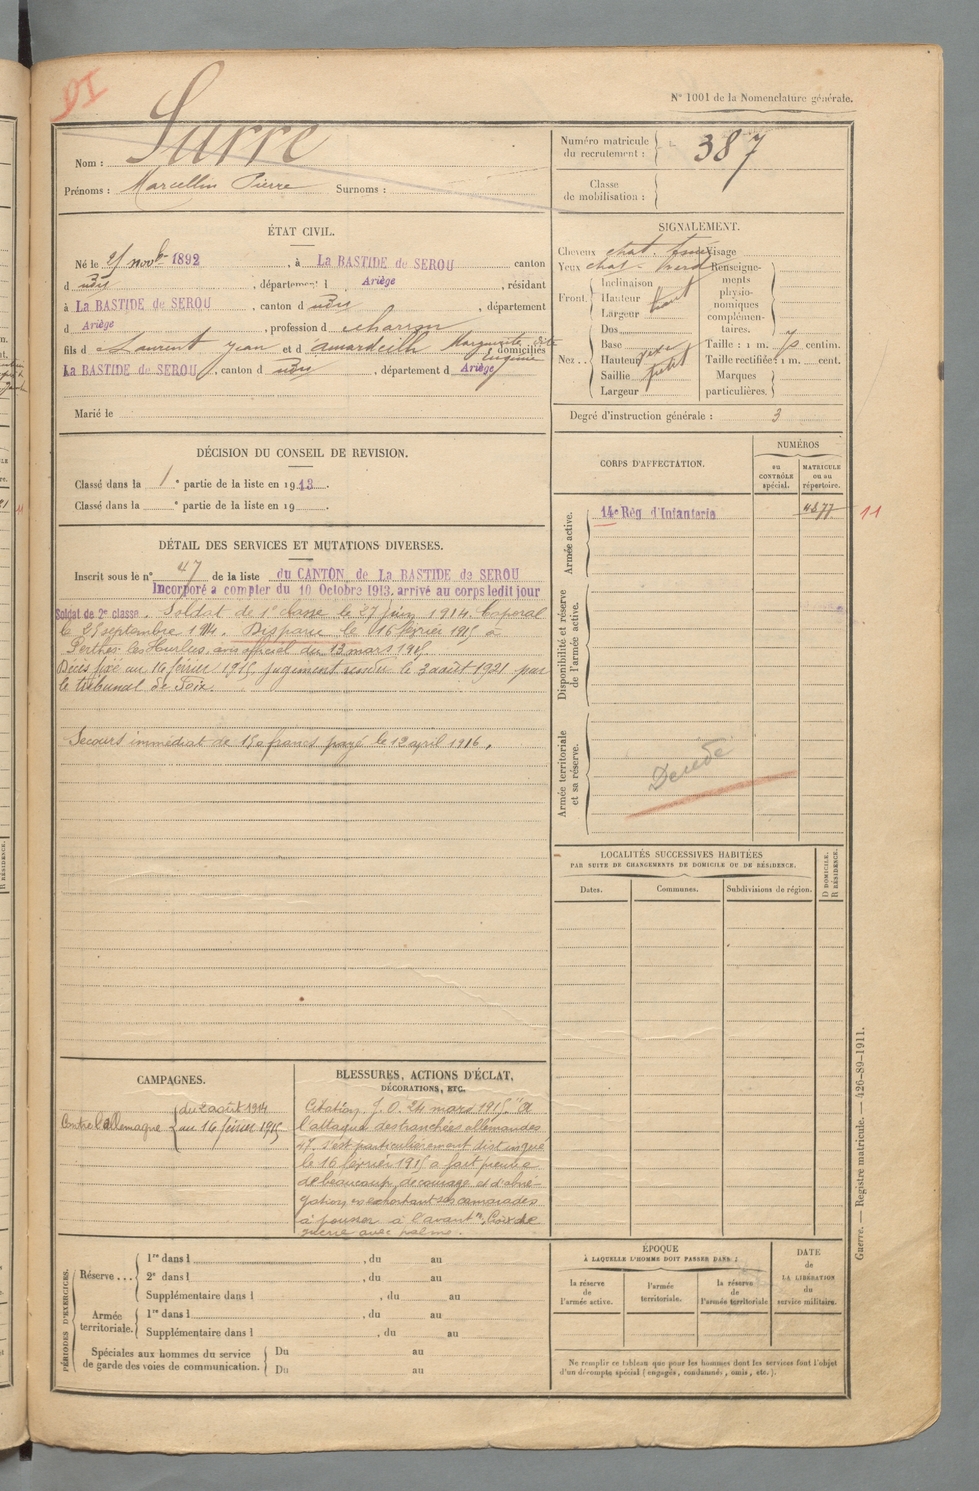 DI
N° 1001 de la Nomenclature générale.
Nom : Surre
Prénoms : Marcellin Pierre Surnoms :
Numéro matricule du recrutement : 387
Classe de mobilisation :
ÉTAT CIVIL.
Né le 25 novbre 1892, à La BASTIDE de SEROU canton
d udit, département d Ariège, résidant
à La BASTIDE de SEROU, canton d udit, département
d Ariège, profession d charron
fils d Laurent Jean et d Amardeilh Marguerite dite Eugénie domiciliés
La BASTIDE de SEROU, canton d udit, département d Ariège
Marié le
SIGNALEMENT.
Cheveux chat. foncé Visage
Yeux chat. verd
Front. Inclinaison
Hauteur haut
Largeur
Nez .. Dos
Base
Hauteur
Saillie petit
Largeur
Renseignements physionomiques complémentaires.
Taille : 1 m. 70 centim.
Taille rectifiée : 1 m. cent.
Marques particulières.
Degré d'instruction générale : 3
DÉCISION DU CONSEIL DE REVISION.
Classé dans la 1e partie de la liste en 1913.
Classé dans la e partie de la liste en 19 .
CORPS D'AFFECTATION.
NUMÉROS
au CONTRÔLE spécial.
MATRICULE ou au répertoire.
Armée active.
14e Rég d'Infanterie 4577 11
Disponibilité et réserve de l'armée active.
Armée territoriale et sa réserve.
Décédé
DÉTAIL DES SERVICES ET MUTATIONS DIVERSES.
Inscrit sous le n° 47 de la liste du CANTON de La BASTIDE de SEROU
Incorporé à compter du 10 Octobre 1913, arrivé au corps ledit jour
Soldat de 2e classe. Soldat de 1e classe le 27 juin 1914. Caporal
le 25 septembre 1914. Disparu le 16 février 1915 à
Perthes les Hurlus, avis officiel du 13 mars 1915
Décès fixé au 16 février 1915, jugement rendu le 3 août 1921 par
le tribunal de Foix.
Secours immédiat de 150 francs payé le 12 april 1916.
LOCALITÉS SUCCESSIVES HABITÉES
PAR SUITE DE CHANGEMENTS DE DOMICILE OU DE RÉSIDENCE.
Dates. Communes. Subdivisions de région. D DOMICILE. R RÉSIDENCE.
CAMPAGNES.
Contre l'allemagne du 2 août 1914
au 16 février 1915
BLESSURES, ACTIONS D'ÉCLAT,
DÉCORATIONS, ETC.
Citation J.O. 24 mars 1915. "A
l'attaque des tranchées allemandes
s'est particulièrement distingué
le 16 février 1915 a fait preuve
de beaucoup de courage et d'abné-
gation en exhortant ses camarades
à pousser à l'avant". Croix de
guerre avec palme.
PÉRIODES D'EXERCICES.
Réserve ... 1re dans l , du au
2e dans l , du au
Supplémentaire dans l , du au
Armée territoriale. 1re dans l , du au
Supplémentaire dans l , du au
Spéciales aux hommes du service
de garde des voies de communication. Du au
Du au
ÉPOQUE
À LAQUELLE L'HOMME DOIT PASSER DANS :
la réserve de l'armée active.
l'armée territoriale.
la réserve de l'armée territoriale
DATE de LA LIBÉRATION du service militaire.
Ne remplir ce tableau que pour les hommes dont les services font l'objet
d'un décompte spécial (engagés, condamnés, omis, etc.).
Guerre. — Registre matricule. — 426-89-1911.